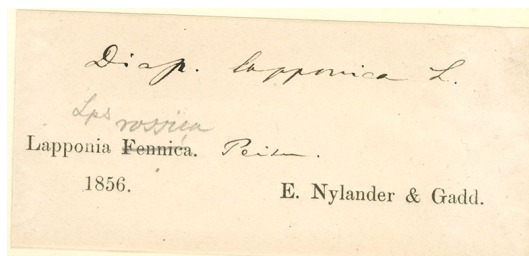 Diap. lapponica L.
Lps rossica
Lapponia Fennica.
1856.
E. Nylander & Gadd.